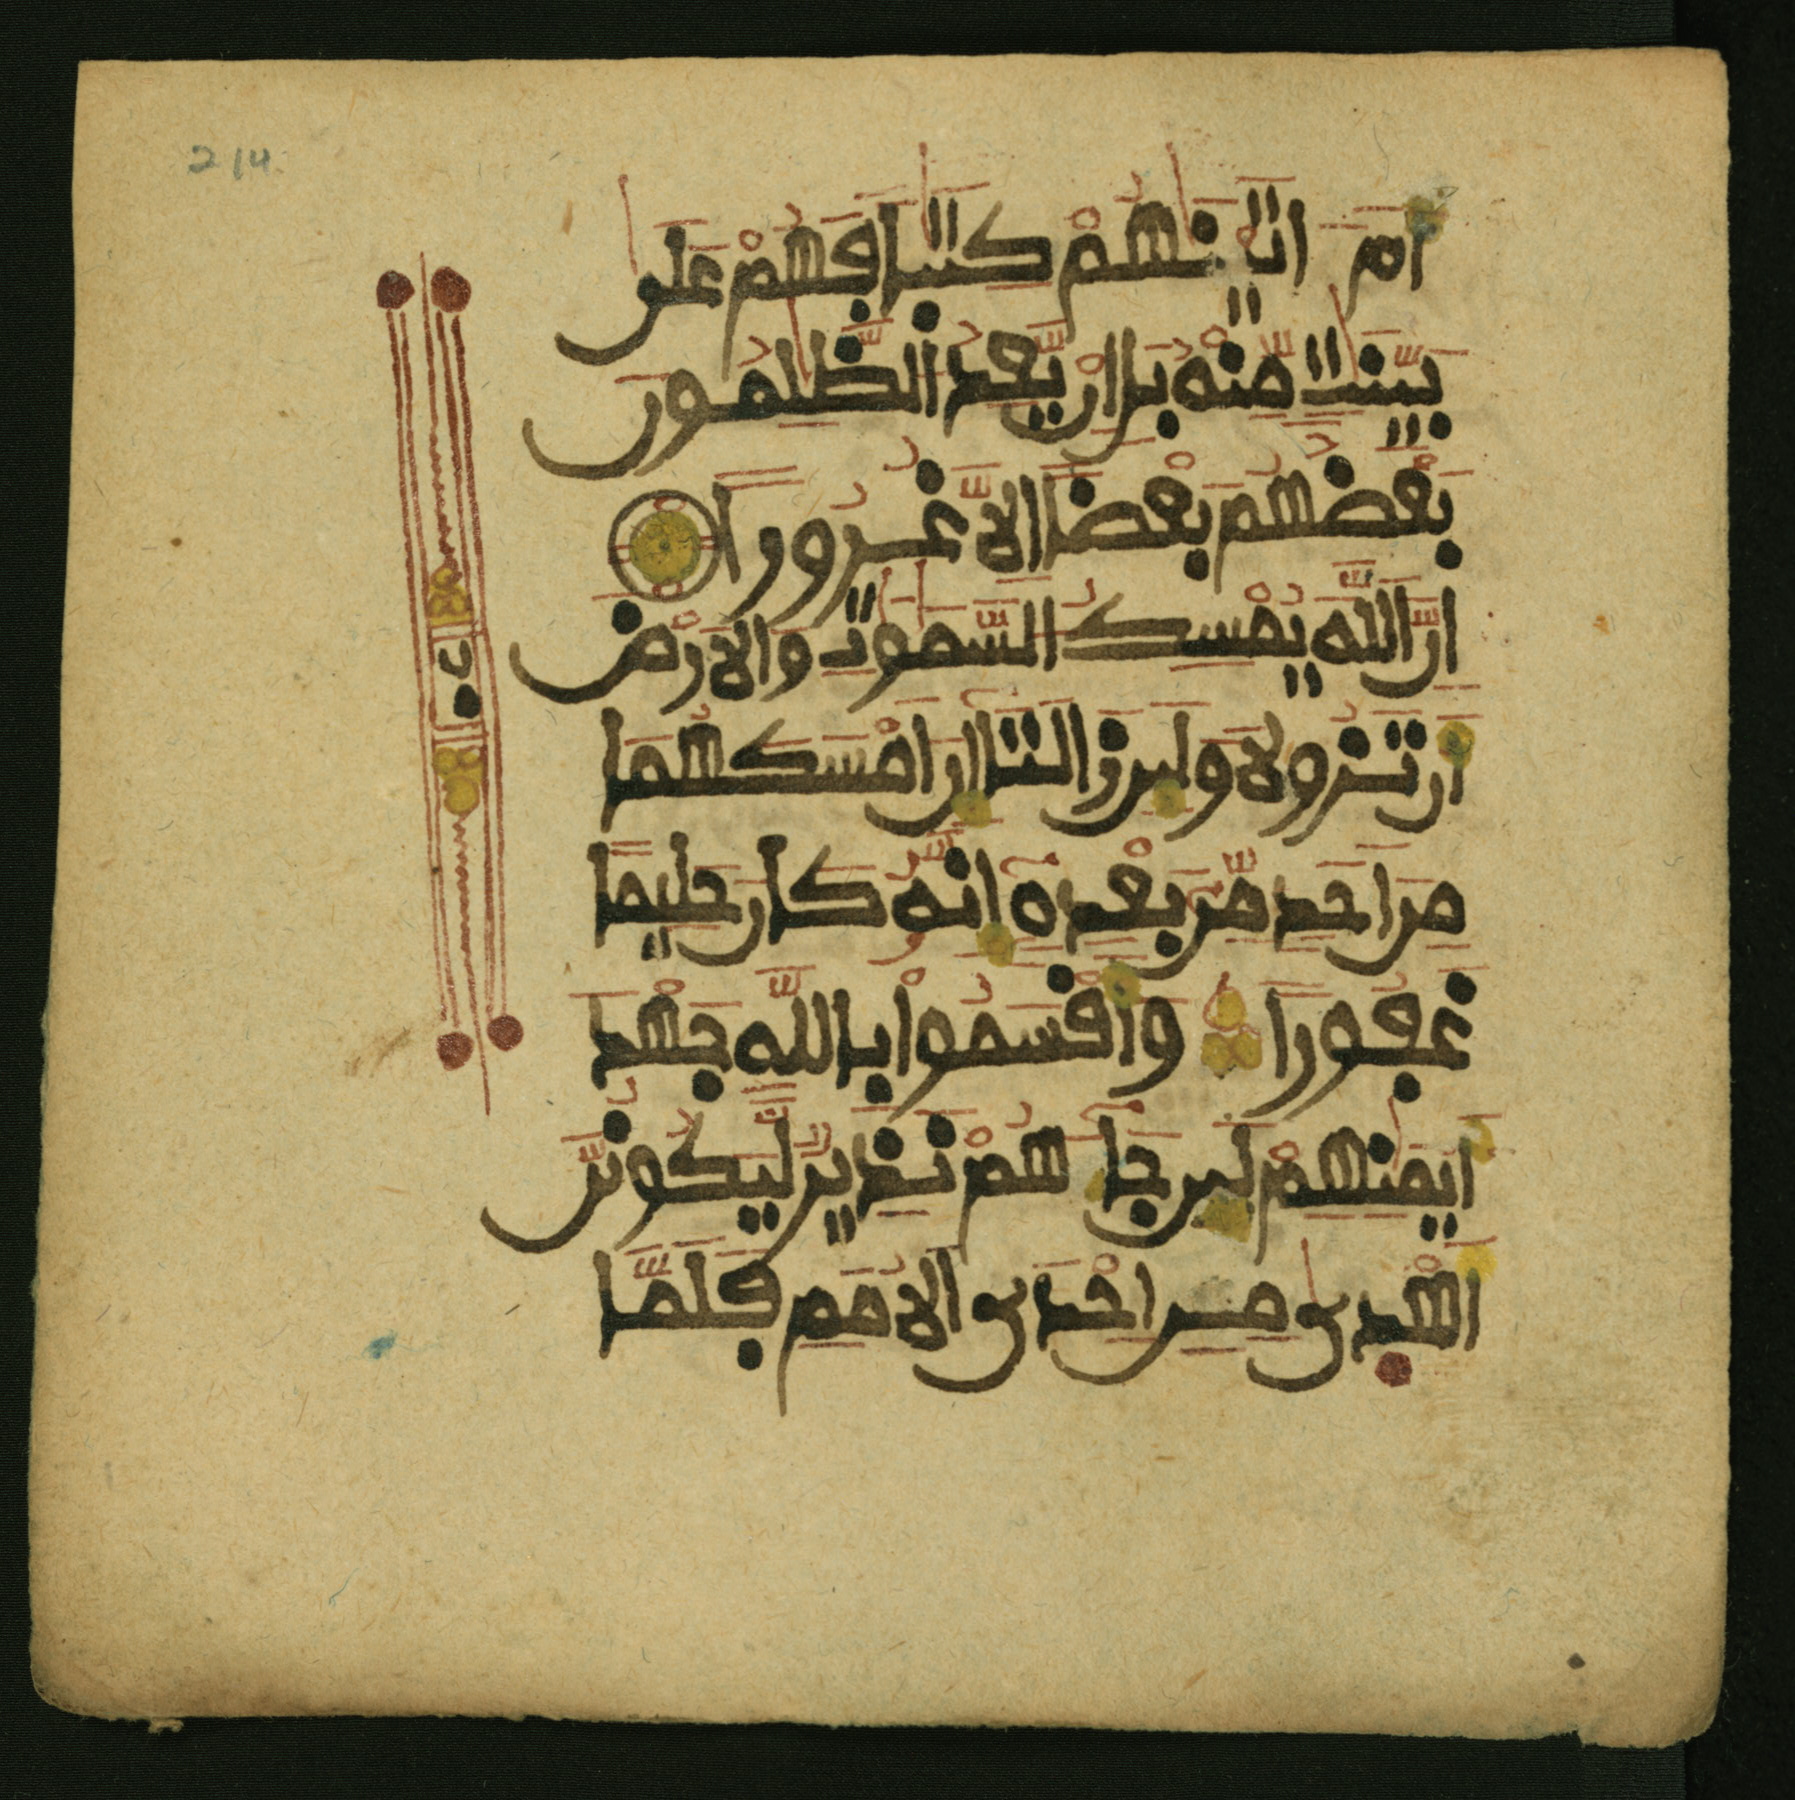 214
أَمَ اتَيْنَٰهُمْ كِتَٰبًا فَهُمْ عَلَىٰ
بَيِّنَٰتٍ مِّنْهُ بَلِ انْ يَّعِدُ الظَّٰلِمُونَ
بَعْضُهُم بَعْضًا الَّا غُرُورًا
اِنَّ اللَّهَ يُمْسِكُ السَّمَٰوَٰتِ وَالَارْضَ
أَن تَزُولَا وَلَئِن زَالَتَا إِنَ امْسَكَهُمَا
مِنَ احَدٍ مِّن بَعْدِهِ إِنَّهُ كَانَ حَلِيمًا
غَفُورًا وَأَقْسَمُوا بِاللَّهِ جَهْدَ
أَيْمَٰنِهِمْ لَئِن جَاءَهُمْ نَذِيرٌ لَّيَكُونُنَّ
أَهْدَىٰ مِنِ احْدَى الُامَمِ فَلَمَّا
ب